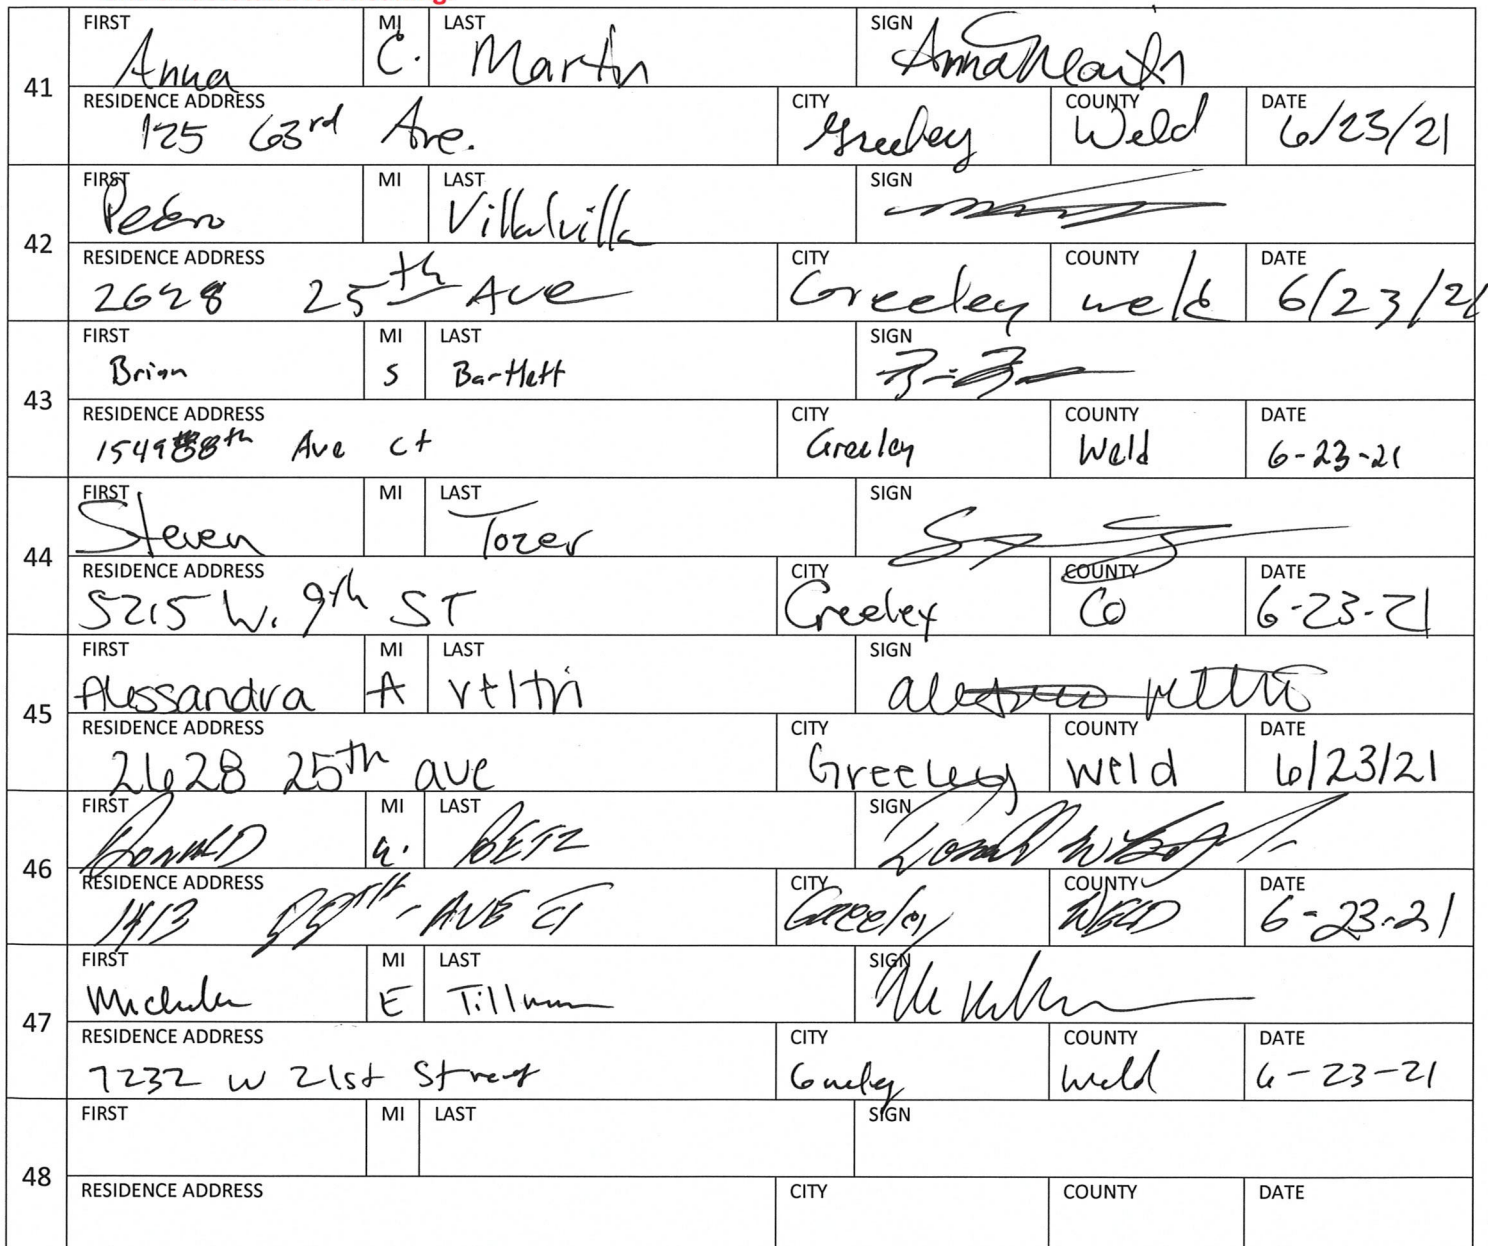 FIRST Anna MI C. LAST Martin SIGN Anna Martin
41
RESIDENCE ADDRESS 125 63rd Ave. CITY Greeley COUNTY Weld DATE 6/23/21
FIRST Pedro MI LAST Villalvilla SIGN
42
RESIDENCE ADDRESS 2628 25th Ave CITY Greeley COUNTY weld DATE 6/23/21
FIRST Brian MI S LAST Bartlett SIGN
43
RESIDENCE ADDRESS Ave Ct CITY Greeley COUNTY Weld DATE 6-23-21
FIRST Steven MI LAST Tozer SIGN
44
RESIDENCE ADDRESS 5215 W. 9th ST CITY Greeley COUNTY CO DATE 6-23-21
FIRST Alessandra MI A LAST veltri SIGN
45
RESIDENCE ADDRESS 2628 25th ave CITY Greeley COUNTY weld DATE 6/23/21
FIRST DONALD MI LAST BETZ SIGN
46
RESIDENCE ADDRESS 1413 AVE CT CITY Greeley COUNTY WELD DATE 6-23-21
FIRST MI E LAST Tillman SIGN
47
RESIDENCE ADDRESS 7232 W 21st Street CITY Greeley COUNTY Weld DATE 6-23-21
FIRST MI LAST SIGN
48
RESIDENCE ADDRESS CITY COUNTY DATE